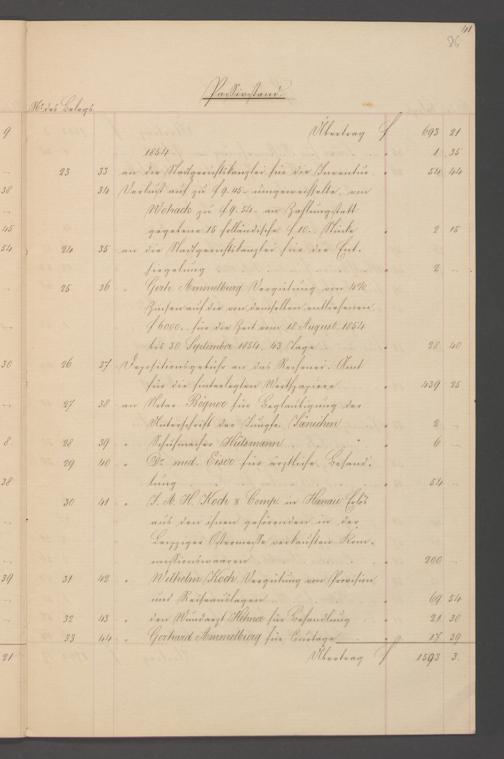 41
86
Passivstand.
No. des Belegs
Übertrag f 693 21
1854 " 1 35
23 33 an die Stadtgerichtskanzlei für die Inventur " 54 44
34 Verlust auf zu f 9.45 umgewechselte, von
Wohack zu f 9.54 an Zahlungsstatt
gegebene 15 holländische f 10.- Stücke " 2 15
24 35 an die Stadtgerichtskanzlei für die Ent-
siegelung " 2 —
25 36 " Gerh. Ammelburg Vergütung von 4%
Zinsen auf die von demselben entliehenen
f 6000.- für die Zeit vom 18 August 1854
bis 30 September 1854, 43 Tage " 28 40
26 37 Depositionsgebühr an das Rechenei-Amt
für die hinterlegten Werthpapiere " 439 25
27 38 an Notar für Beglaubigung der
Unterschrift der Jungfr. Jänichen " 2 —
28 39 " Schuhmacher Hülsmann " 6 —
29 40 " Dr. med. Eiser für ärztliche Behand-
lung " 54 —
30 41 " J. A. H. Koch & Comp. in Hanau Erlös
aus den ihnen gehörenden in der
Leipziger Ostermesse verkauften Kom-
missionswaaren " 200 —
31 42 " Wilhelm Koch, Vergütung von Provision
und Reiseauslagen " 69 54
32 43 " den Wundarzt für Behandlung " 21 30
33 44 " Gerhard Ammelburg für Courtage " 17 39
Übertrag f 1593 3.